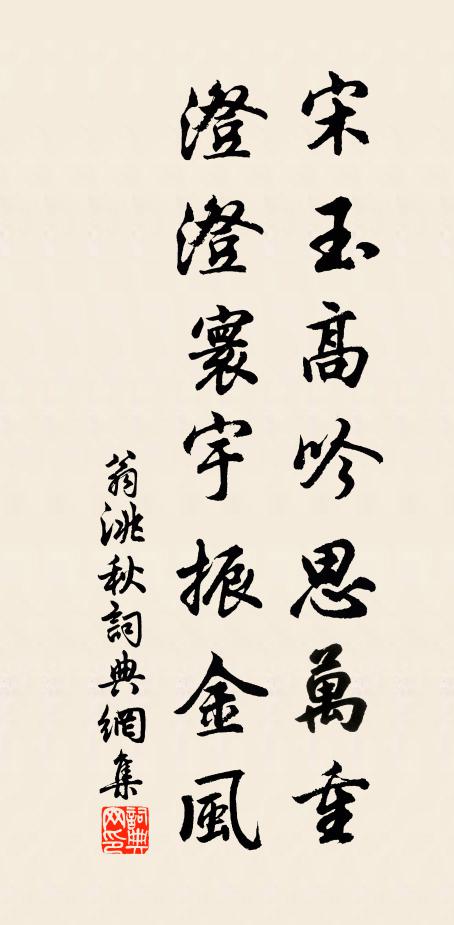 宋玉高吟思萬重
澄澄寰宇振金風
翁洮秋詞典網集
詞典网印